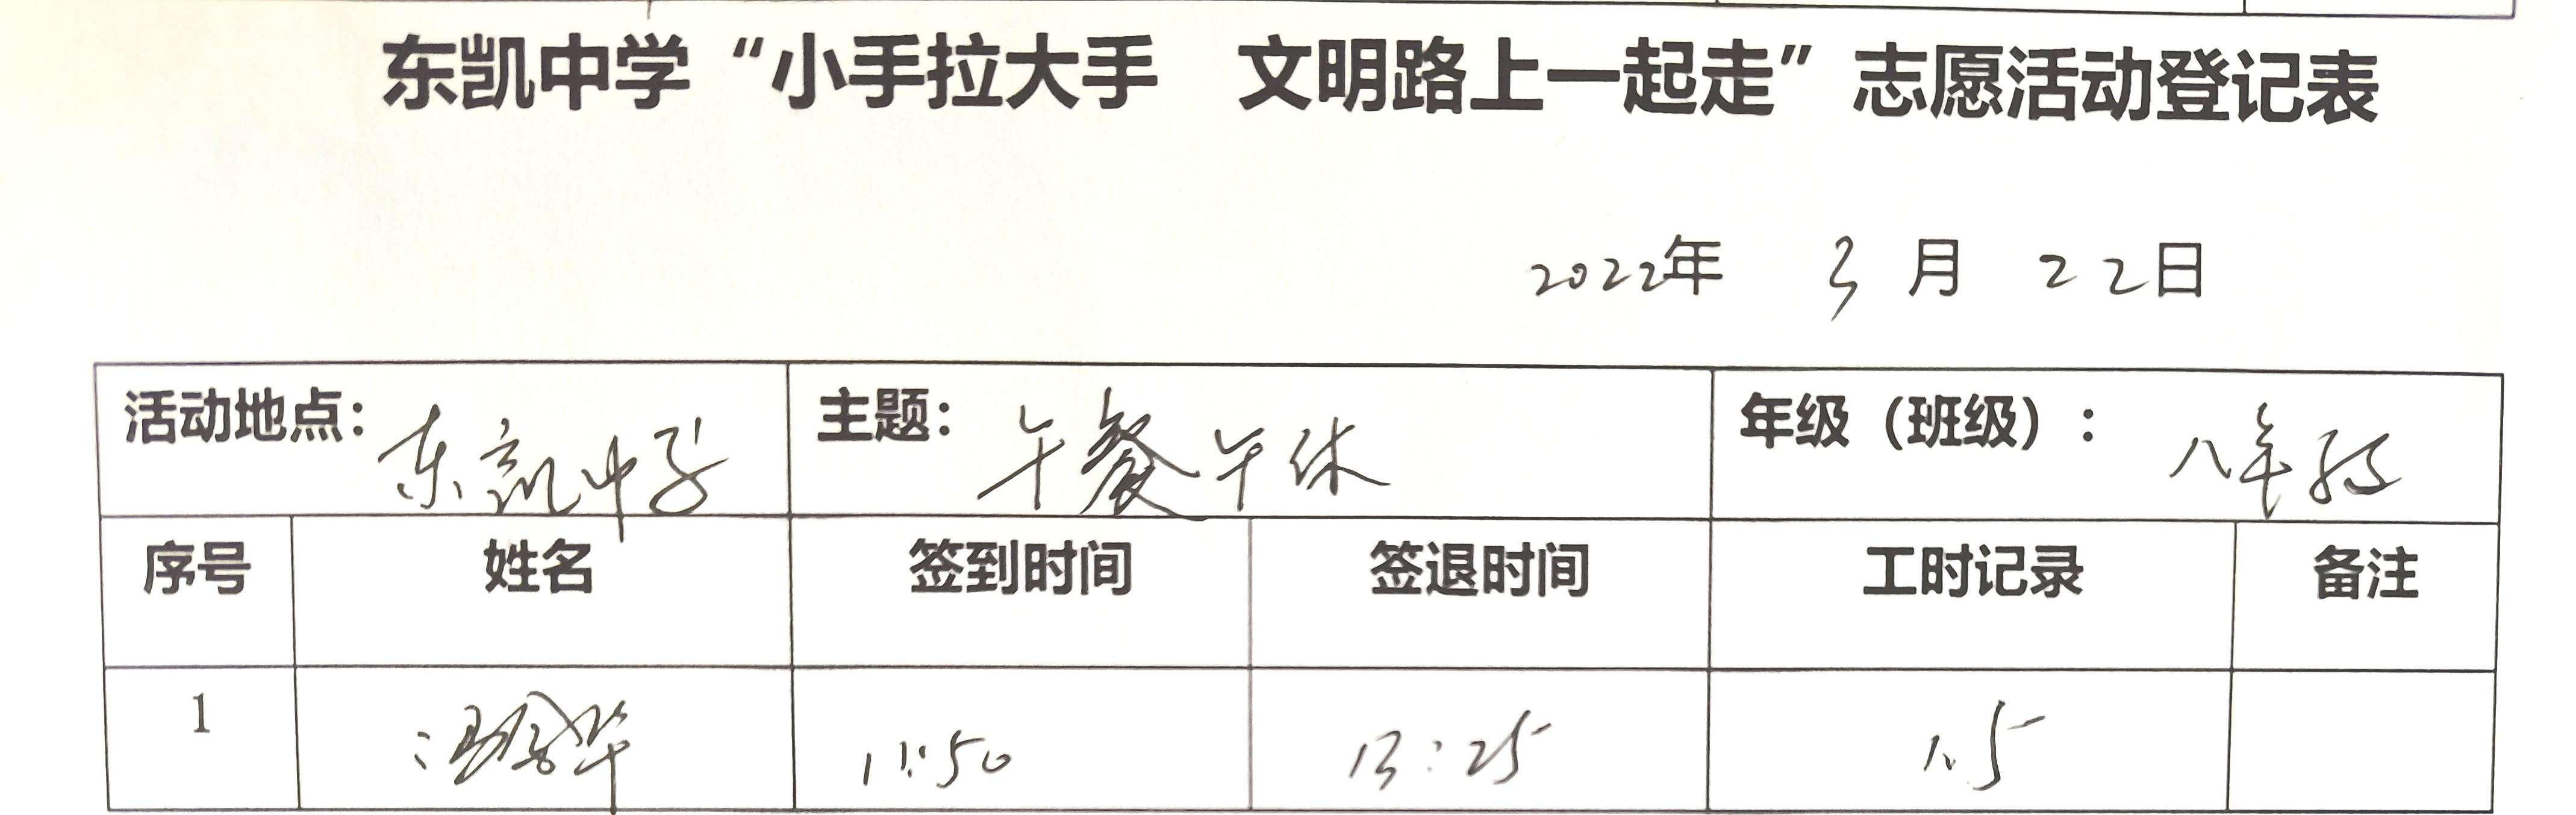 东凯中学“小手拉大手 文明路上一起走”志愿活动登记表
2022年 3月 22日
活动地点：东凯中学 主题：午餐午休 年级（班级）：八年级
序号 姓名 签到时间 签退时间 工时记录 备注
1 11:50 13:25 1.5